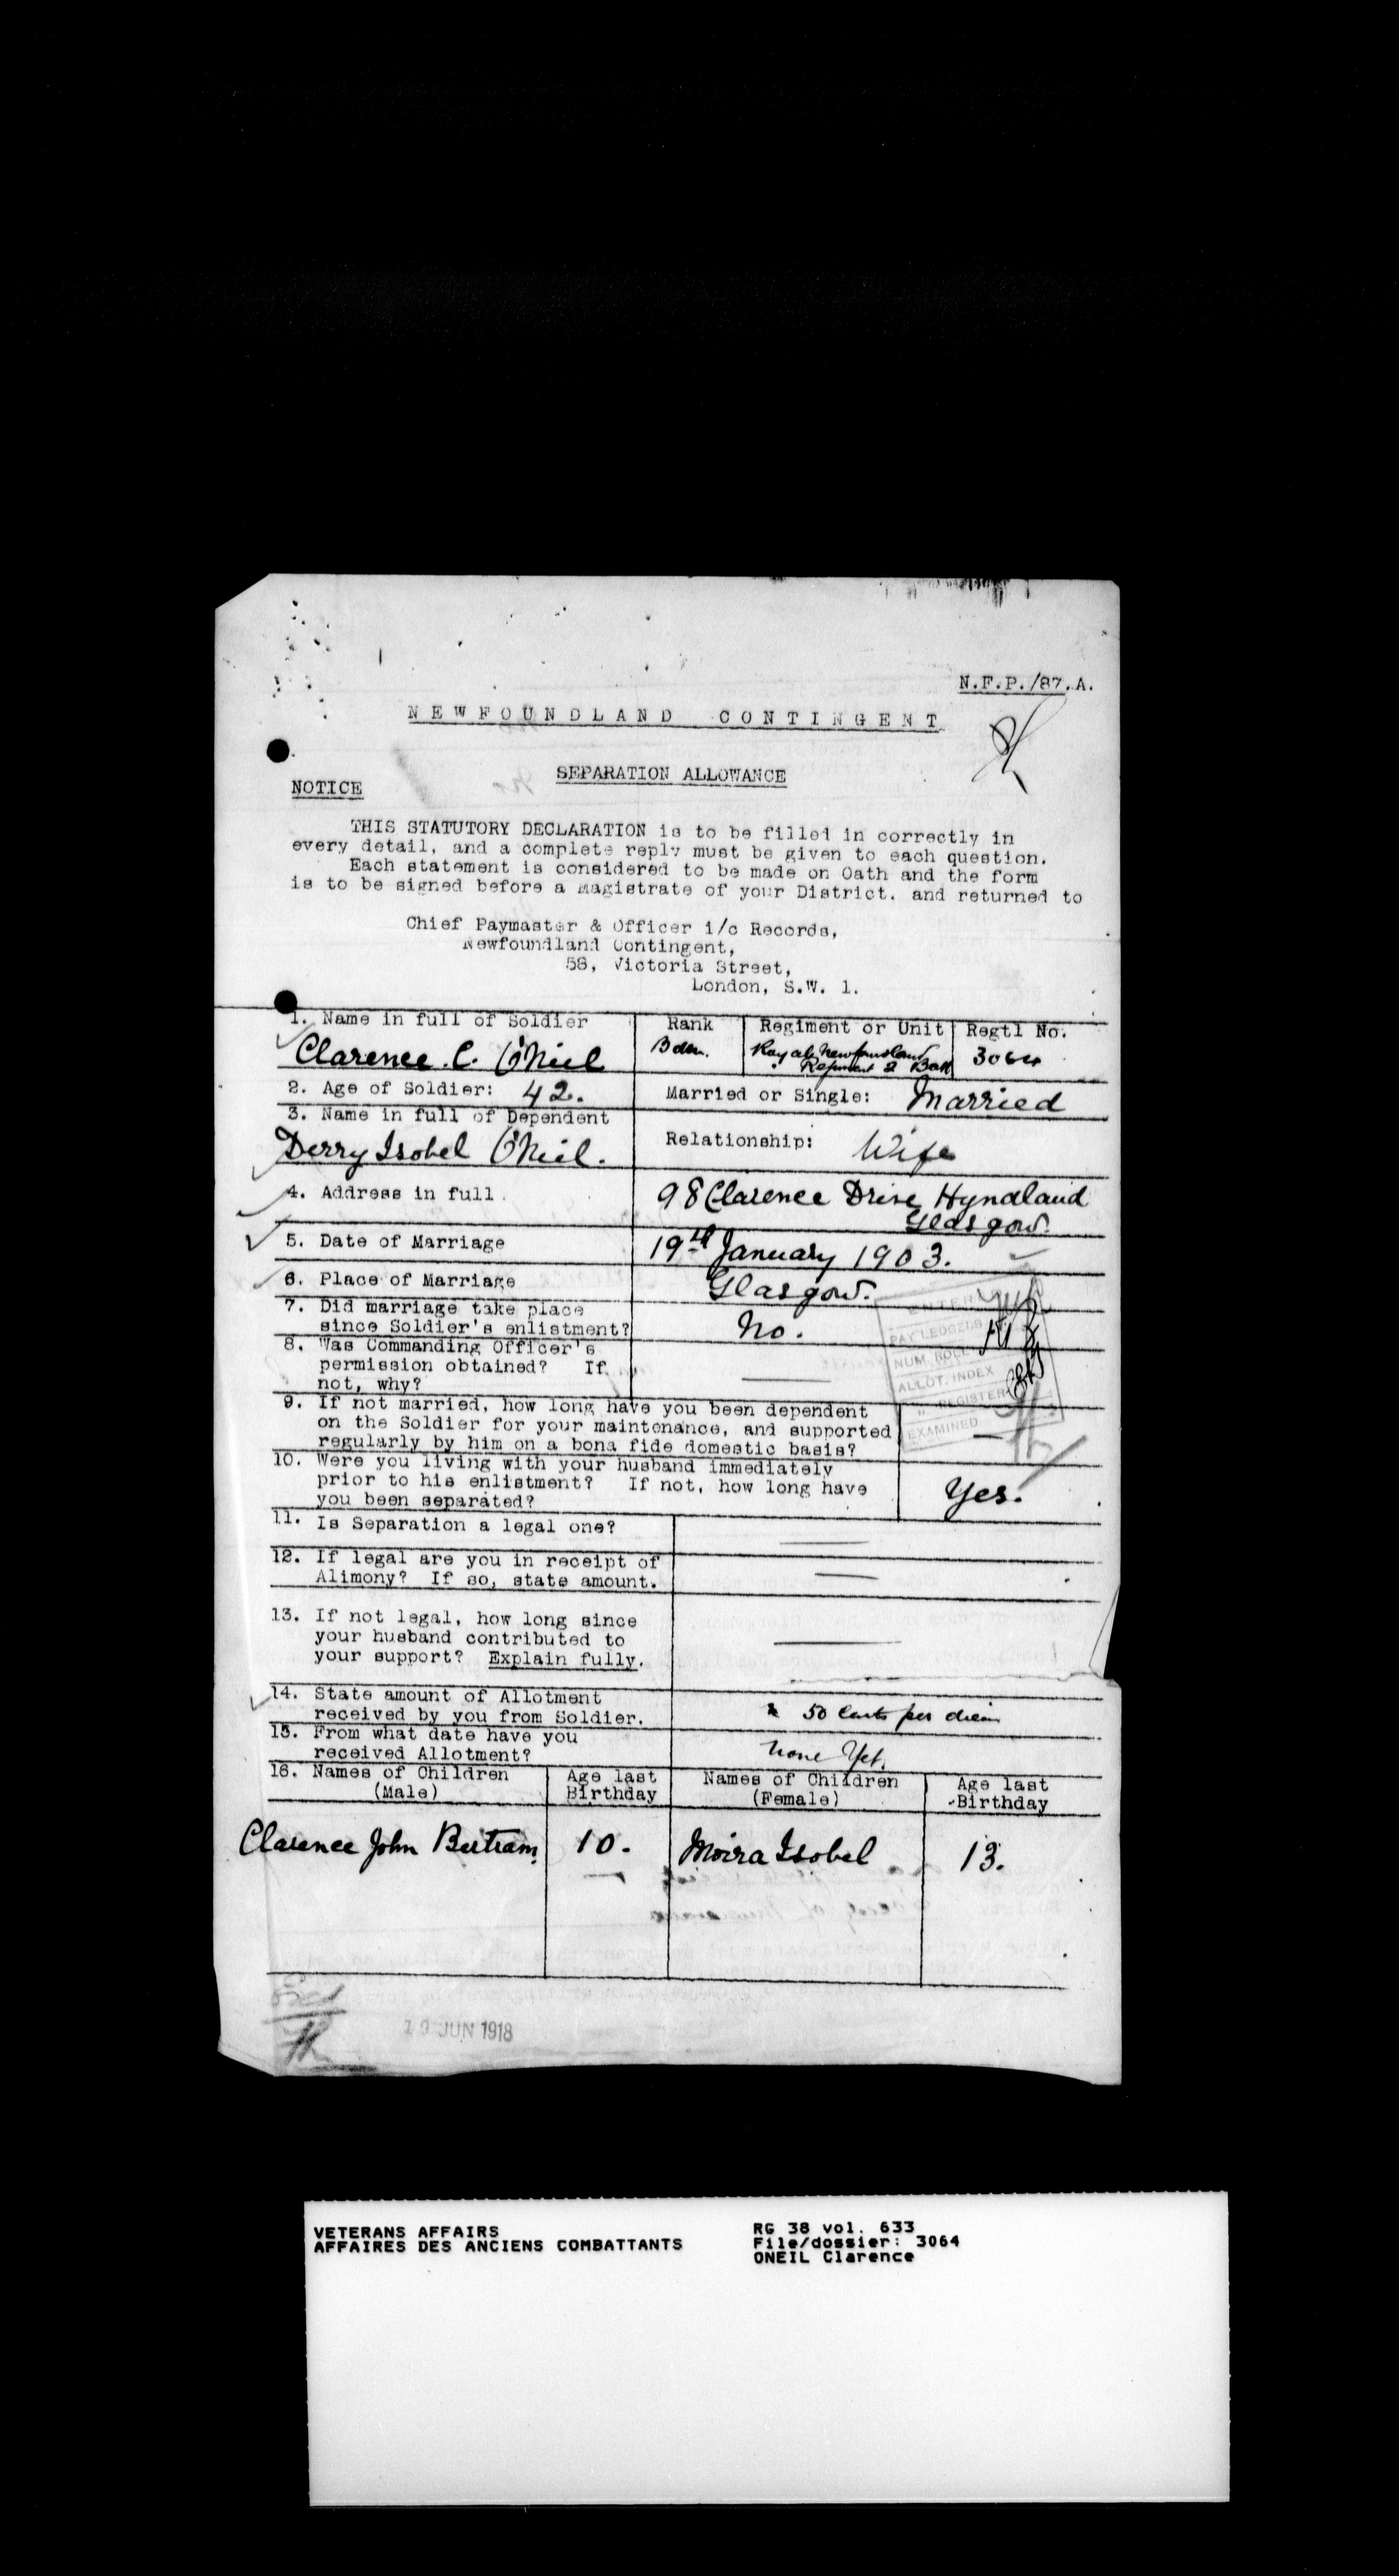 N.F.P./87.A.
NEWFOUNDLAND CONTINGENT
SEPARATION ALLOWANCE
NOTICE
THIS STATUTORY DECLARATION is to be filled in correctly in
every detail, and a complete reply must be given to each question.
Each statement is considered to be made on Oath and the form
is to be signed before a Magistrate of your District. and returned to
Chief Paymaster & Officer i/c Records,
Newfoundland Contingent,
58, Victoria Street,
London, S.W. 1.
1. Name in full of Soldier
Clarence. C. O'Neil
Rank
Regiment or Unit
Royal Newfoundland
Regiment 2 Batt
Regtl No.
3064
2. Age of Soldier: 42.
Married or Single: Married
3. Name in full of Dependent
Derry Isobel O'Neil.
Relationship: Wife
4. Address in full
98 Clarence Drive Hyndland
Glasgow.
5. Date of Marriage
19th January 1903.
6. Place of Marriage
Glasgow.
7. Did marriage take place
since Soldier's enlistment?
No.
8. Was Commanding Officer's
permission obtained? If
not, why?
—
9. If not married, how long have you been dependent
on the Soldier for your maintenance, and supported
regularly by him on a bona fide domestic basis?
—
10. Were you living with your husband immediately
prior to his enlistment? If not, how long have
you been separated?
Yes.
11. Is Separation a legal one?
—
12. If legal are you in receipt of
Alimony? If so, state amount.
—
13. If not legal, how long since
your husband contributed to
your support? Explain fully.
—
14. State amount of Allotment
received by you from Soldier.
50 Cents per diem
15. From what date have you
received Allotment?
None Yet.
16. Names of Children
(Male)
Age last
Birthday
Names of Children
(Female)
Age last
Birthday
Clarence John Bertram. 10. Moira Isobel 13.
ENTERED
PAY LEDGERS
NUM. ROLL
ALLOT. INDEX
" REGISTER
EXAMINED
19 JUN 1918
VETERANS AFFAIRS
AFFAIRES DES ANCIENS COMBATTANTS
RG 38 vol. 633
File/dossier: 3064
ONEIL Clarence